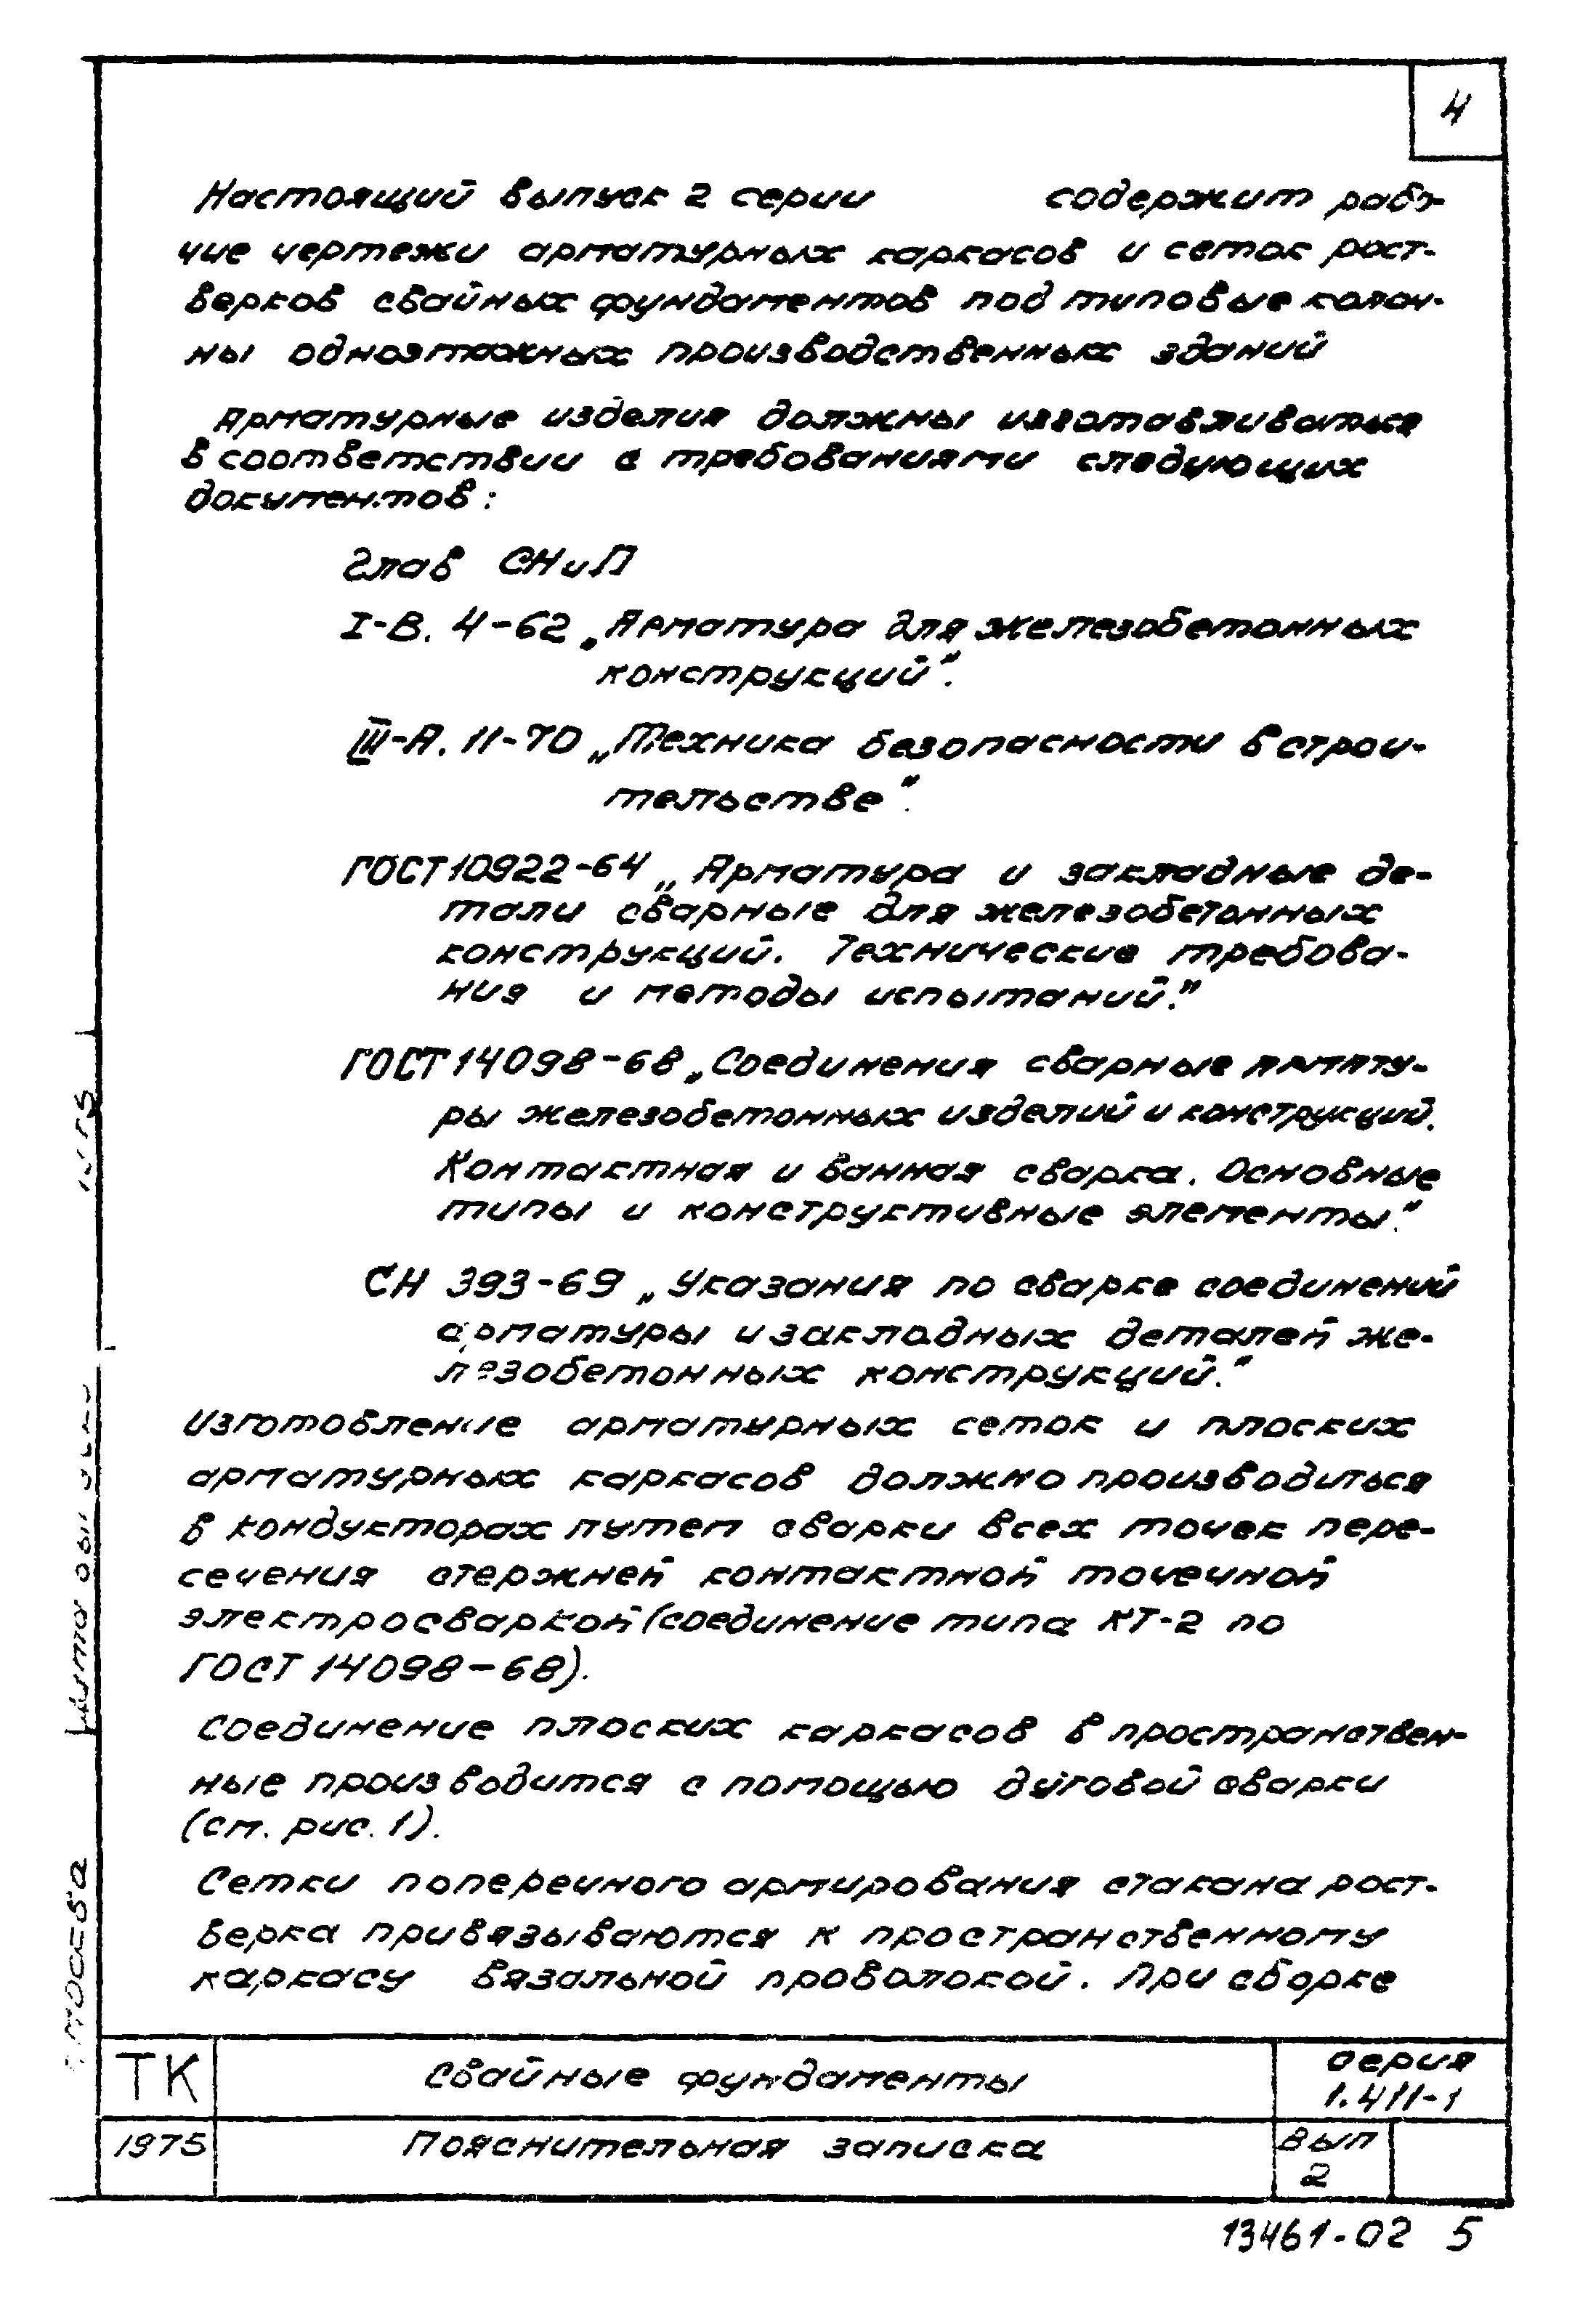 4
Настоящий выпуск 2 серии содержит рабо-
чие чертежи арматурных каркасов и сеток рост-
верков свайных фундаментов под типовые колон-
ны одноэтажных производственных зданий
Арматурные изделия должны изготавливаться
в соответствии с требованиями следующих
документов:
глав СНиП
I-В. 4-62 „Арматура для железобетонных
конструкций".
III-А. 11-70 „Техника безопасности в строи-
тельстве".
ГОСТ 10922-64 „Арматура и закладные де-
тали сварные для железобетонных
конструкций. Технические требова-
ния и методы испытаний."
ГОСТ 14098-68 „Соединения сварные армату-
ры железобетонных изделий и конструкций.
Контактная и ванная сварка. Основные
типы и конструктивные элементы."
СН 393-69 „Указания по сварке соединений
арматуры и закладных деталей же-
лезобетонных конструкций."
Изготовление арматурных сеток и плоских
арматурных каркасов должно производиться
в кондукторах путем сварки всех точек пере-
сечения стержней контактной точечной
электросваркой (соединение типа КТ-2 по
ГОСТ 14098-68).
Соединение плоских каркасов в пространствен-
ные производится с помощью дуговой сварки
(см. рис. 1).
Сетки поперечного армирования стакана рост-
верка привязываются к пространственному
каркасу вязальной проволокой. При сборке
ТК
Свайные фундаменты
серия
1.411-1
1975
Пояснительная записка
Вып
2
13461-02 5